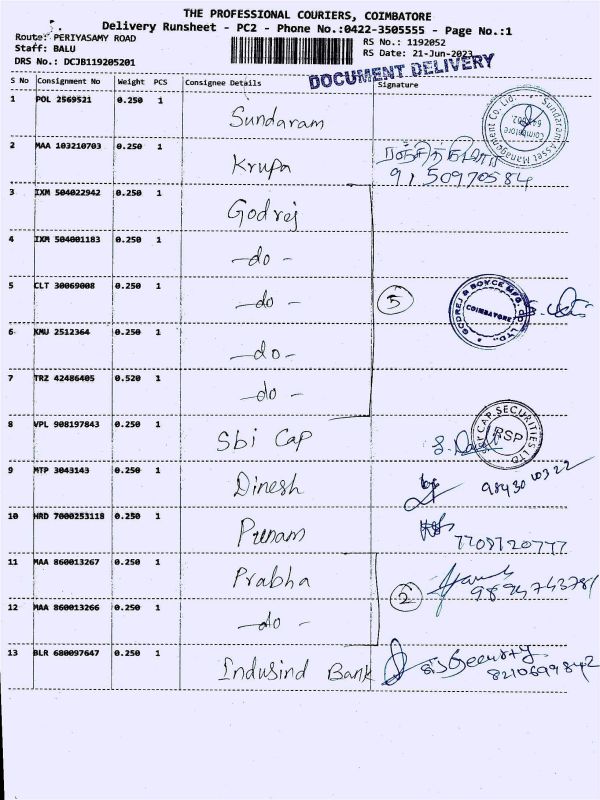 THE PROFESSIONAL COURIERS, COIMBATORE
Delivery Runsheet - PC2 - Phone No.:0422-3505555 - Page No.:1
Route: PERIYASAMY ROAD
RS No.: 1192052
Staff: BALU
RS Date: 21-Jun-2023
DRS No.: DCJB119205201
DOCUMENT DELIVERY
S No Consignment No Weight PCS Consignee Details Signature
1 POL 2569521 0.250 1 Sundaram
Sundaram Asset Management Co. Ltd. Coimbatore
2 MAA 103210703 0.250 1 Krupa
9150970584
3 IXM 504022942 0.250 1 Godrej
4 IXM 504001183 0.250 1 -do-
5 CLT 30069008 0.250 1 -do- 5
GODREJ & BOYCE MFG. CO. LTD. COIMBATORE
6 KMU 2512364 0.250 1 -do-
7 TRZ 42486405 0.520 1 -do-
8 VPL 908197843 0.250 1 Sbi Cap
CAP SECURITIES LTD RSP
9 MTP 3043143 0.250 1 Dinesh
98430 10322
10 HRD 7000253118 0.250 1 Punam
11 MAA 860013267 0.250 1 Prabha
2
12 MAA 860013266 0.250 1 -do-
13 BLR 680097647 0.250 1 Indusind Bank
Security